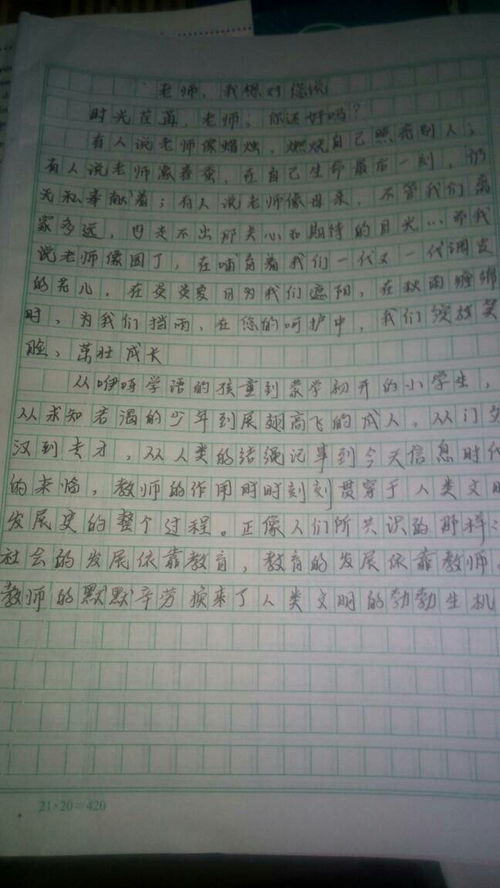 老师，我想对您说
时光荏苒，老师，你还好吗？
有人说老师像蜡烛，燃烧自己照亮别人；
有人说老师像春蚕，在自己生命最后一刻，仍
无私奉献着；有人说老师像母亲，不管我们离
家多远，也走不出那关心和期待的目光…而我
说老师像园丁，在哺育着我们一代又一代调皮
的花儿，在炎炎夏日为我们遮阳，在秋雨缠绵
时，为我们挡雨，在您的呵护中，我们绽放笑
脸，茁壮成长
从咿呀学语的孩童到蒙学初开的小学生，
从求知若渴的少年到展翅高飞的成人，从门外
汉到专才，从人类的结绳记事到今天信息时代
的来临，教师的作用时时刻刻贯穿于人类文明
发展史的整个过程。正像人们所共识的那样：
社会的发展依靠教育，教育的发展依靠教师。
教师的默默辛劳换来了人类文明的勃勃生机
21×20=420